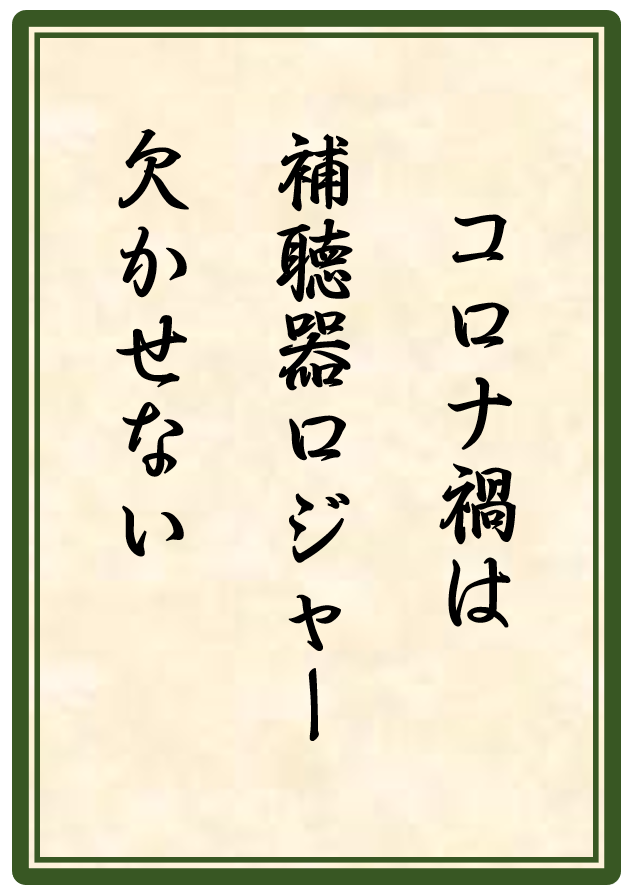 コロナ禍は
補聴器ロジャー
欠かせない